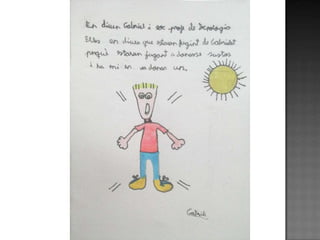 En diuen Gabriel i soc profe de Tecnologia
en diuen que estaven fugint de
perquè estaven jugant a donarse sustos
i ha mi en va donar un.
Gabriel